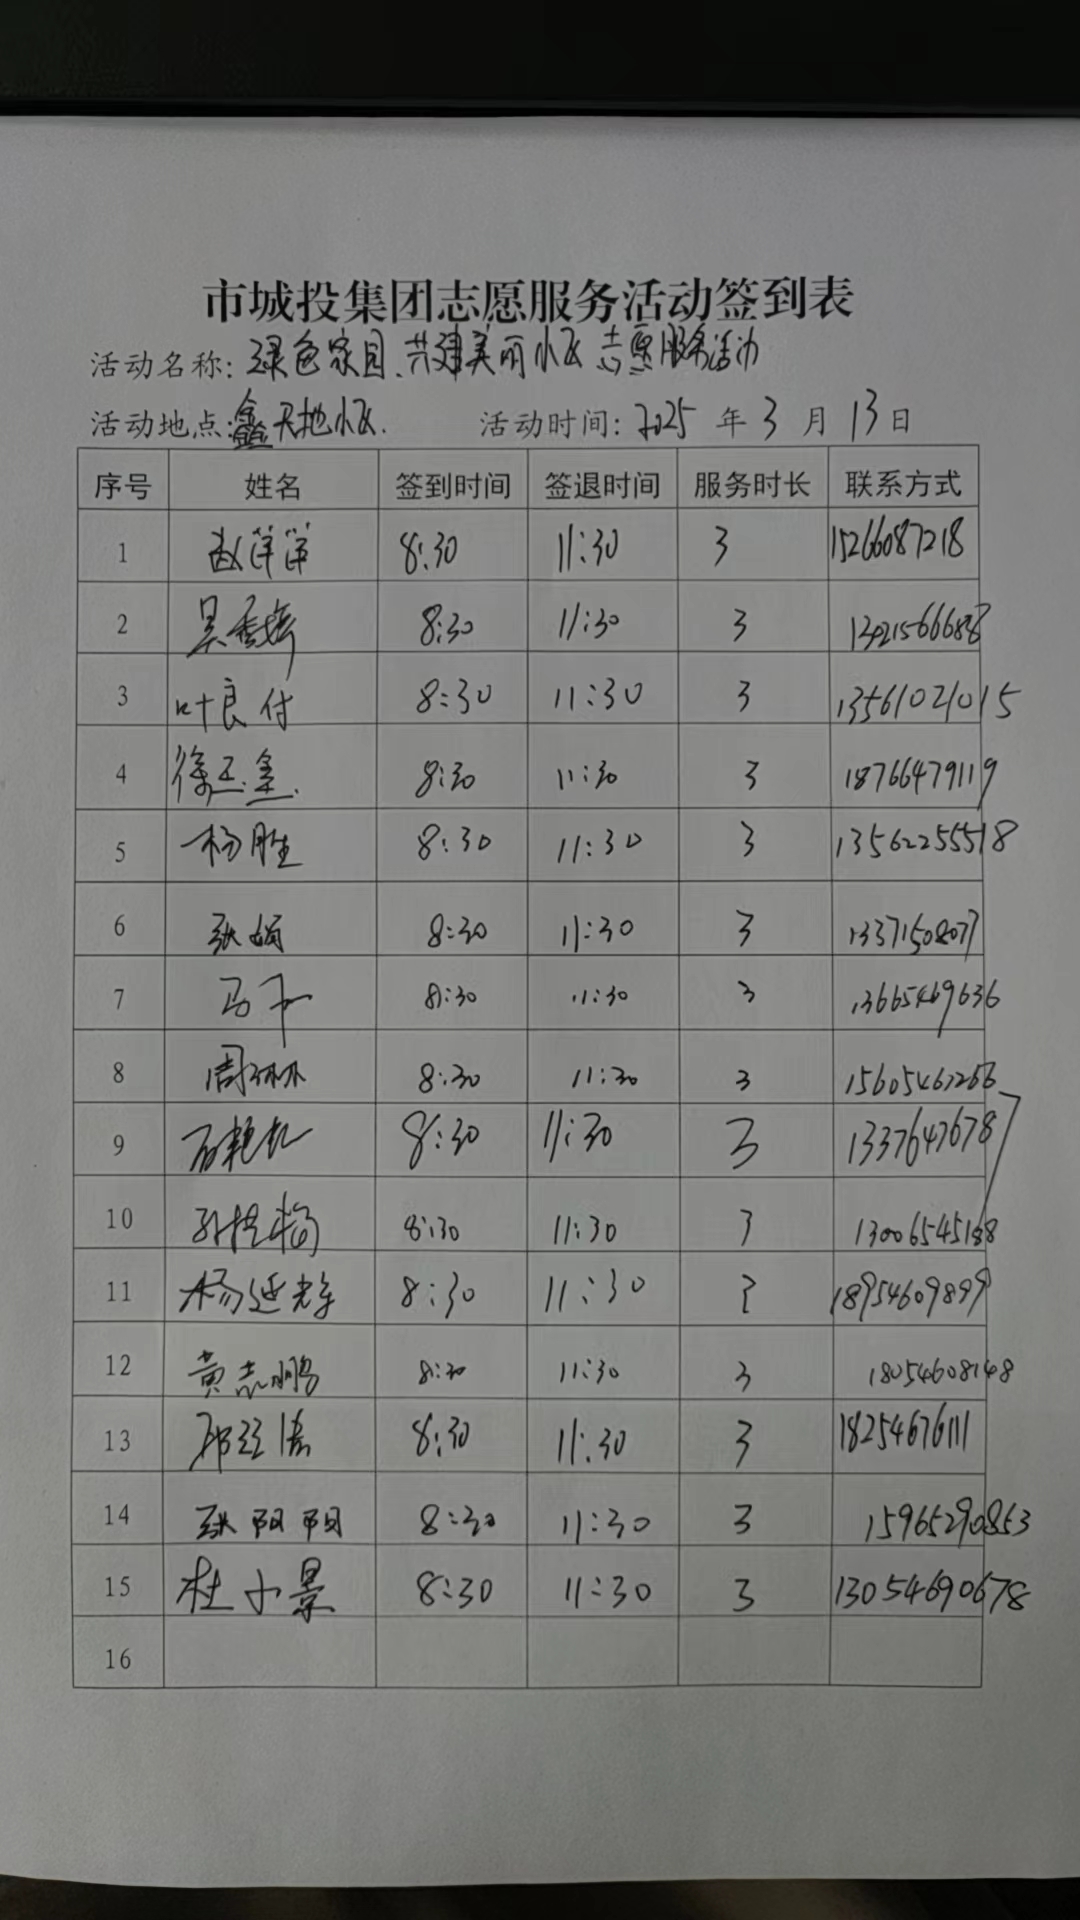 市城投集团志愿服务活动签到表
活动名称: 绿色家园、共建美丽小区志愿服务活动
活动地点: 鑫天地小区. 活动时间: 2025 年 3 月 13 日
序号 姓名 签到时间 签退时间 服务时长 联系方式
1 赵洋洋 8:30 11:30 3 15266087218
2 8:30 11:30 3
3 叶良付 8:30 11:30 3 13561021015
4 徐玉鑫 8:30 11:30 3 18766479119
5 杨胜 8:30 11:30 3 13562255518
6 张娟 8:30 11:30 3 13371508077
7 8:30 11:30 3 13665469636
8 周琳琳 8:30 11:30 3
9 8:30 11:30 3 13376476787
10 8:30 11:30 3
11 杨延辉 8:30 11:30 3 18954609899
12 黄志鹏 8:30 11:30 3 18054608148
13 8:30 11:30 3 18254676111
14 张阳阳 8:30 11:30 3 15965290853
15 杜小景 8:30 11:30 3 13054690678
16